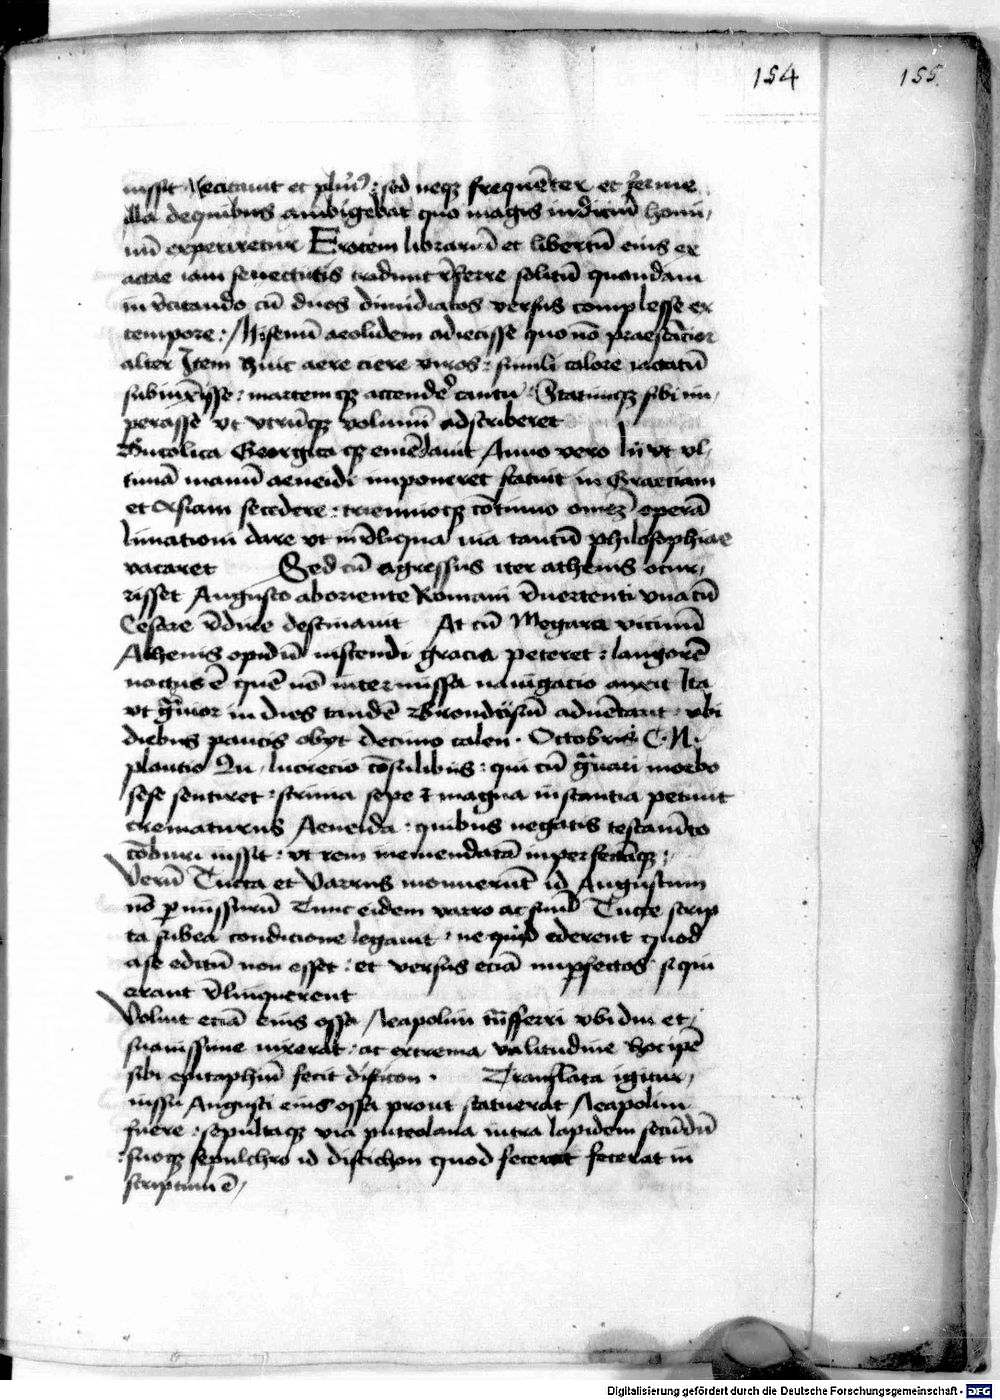 154
155.
iussit Recitauit et plurib9 : sed neq3 frequēter et ferme
illa dequibus ambigebat quo magis iudiciū homi,
nū experiretur Erotem librariū et libertū eius ex
actae iam senectutis tradunt rēferre solitū quondam
in rēcitando cū duos dimidiatos versus complesse ex
tempore : Misenū aeolidem adiecisse quo nō praestācior
alter Item huic aere ciere viros : simili calore iactatū
subiūxisse : martemq3 accendere cantu Statimq3 sibi im,
perasse vt vtrūq3 volumī adscriberet
Bucolica Georgica q3 emēdauit Anno vero lij vt vl,
timā manū aeneidi imponeret statuit in Graeciam
et Asiam secedere : triennioq3 cōtinuo omēz operā
limationi dare vt in rēliqua uia tantū philosophiae
vacaret Sed cū egressus iter athenis occur,
risset Augusto aboriente Romam rēuertenti vna cū
Cesare rēdire destinauit At cū Megara vicinū
Athenis opidū uisendi gracia peteret : langorē
nactus ē quē nō intermissa nauigatio auxit Ita
vt grauior in dies tandē Brondisiū aduētaret vbi
diebus paucis obijt decimo calen. Octobris C. N.
plautio Qu. lucrecio cōsulibus : qui cū graui morbo
sese sentiret : scrinia sepe et magna instantia petiuit
crematurus Aeneida : quibus negatis testamēto
cōburi iussit : vt rem inemendatā imperfectāq3 :
Verū Tucca et Varrus monuerūt id Augustum
nō permissurū Tunc eidem varro ac simul Tucce scrip
ta subea condicione legauit : ne quid ederent quod
ase editū non esset : et versus eciā imperfectos si qui
erant rēlinquerent
Voluit eciā eius ossa Neapolim trāsferri vbi diu et,
suauissime uixerat : ac extrema valitudine hoc ipē
sibi epitaphiū fecit disticon . Translata igitur,
iussu Augusti eius ossa prout statuerat Neapolim
fuere : sepultaq3 via puteolana intra lapidem secūdū
: suoq3 sepulchro id distichon quod fecerat fecerat in
scriptum ē,
Digitalisierung gefördert durch die Deutsche Forschungsgemeinschaft - DFG